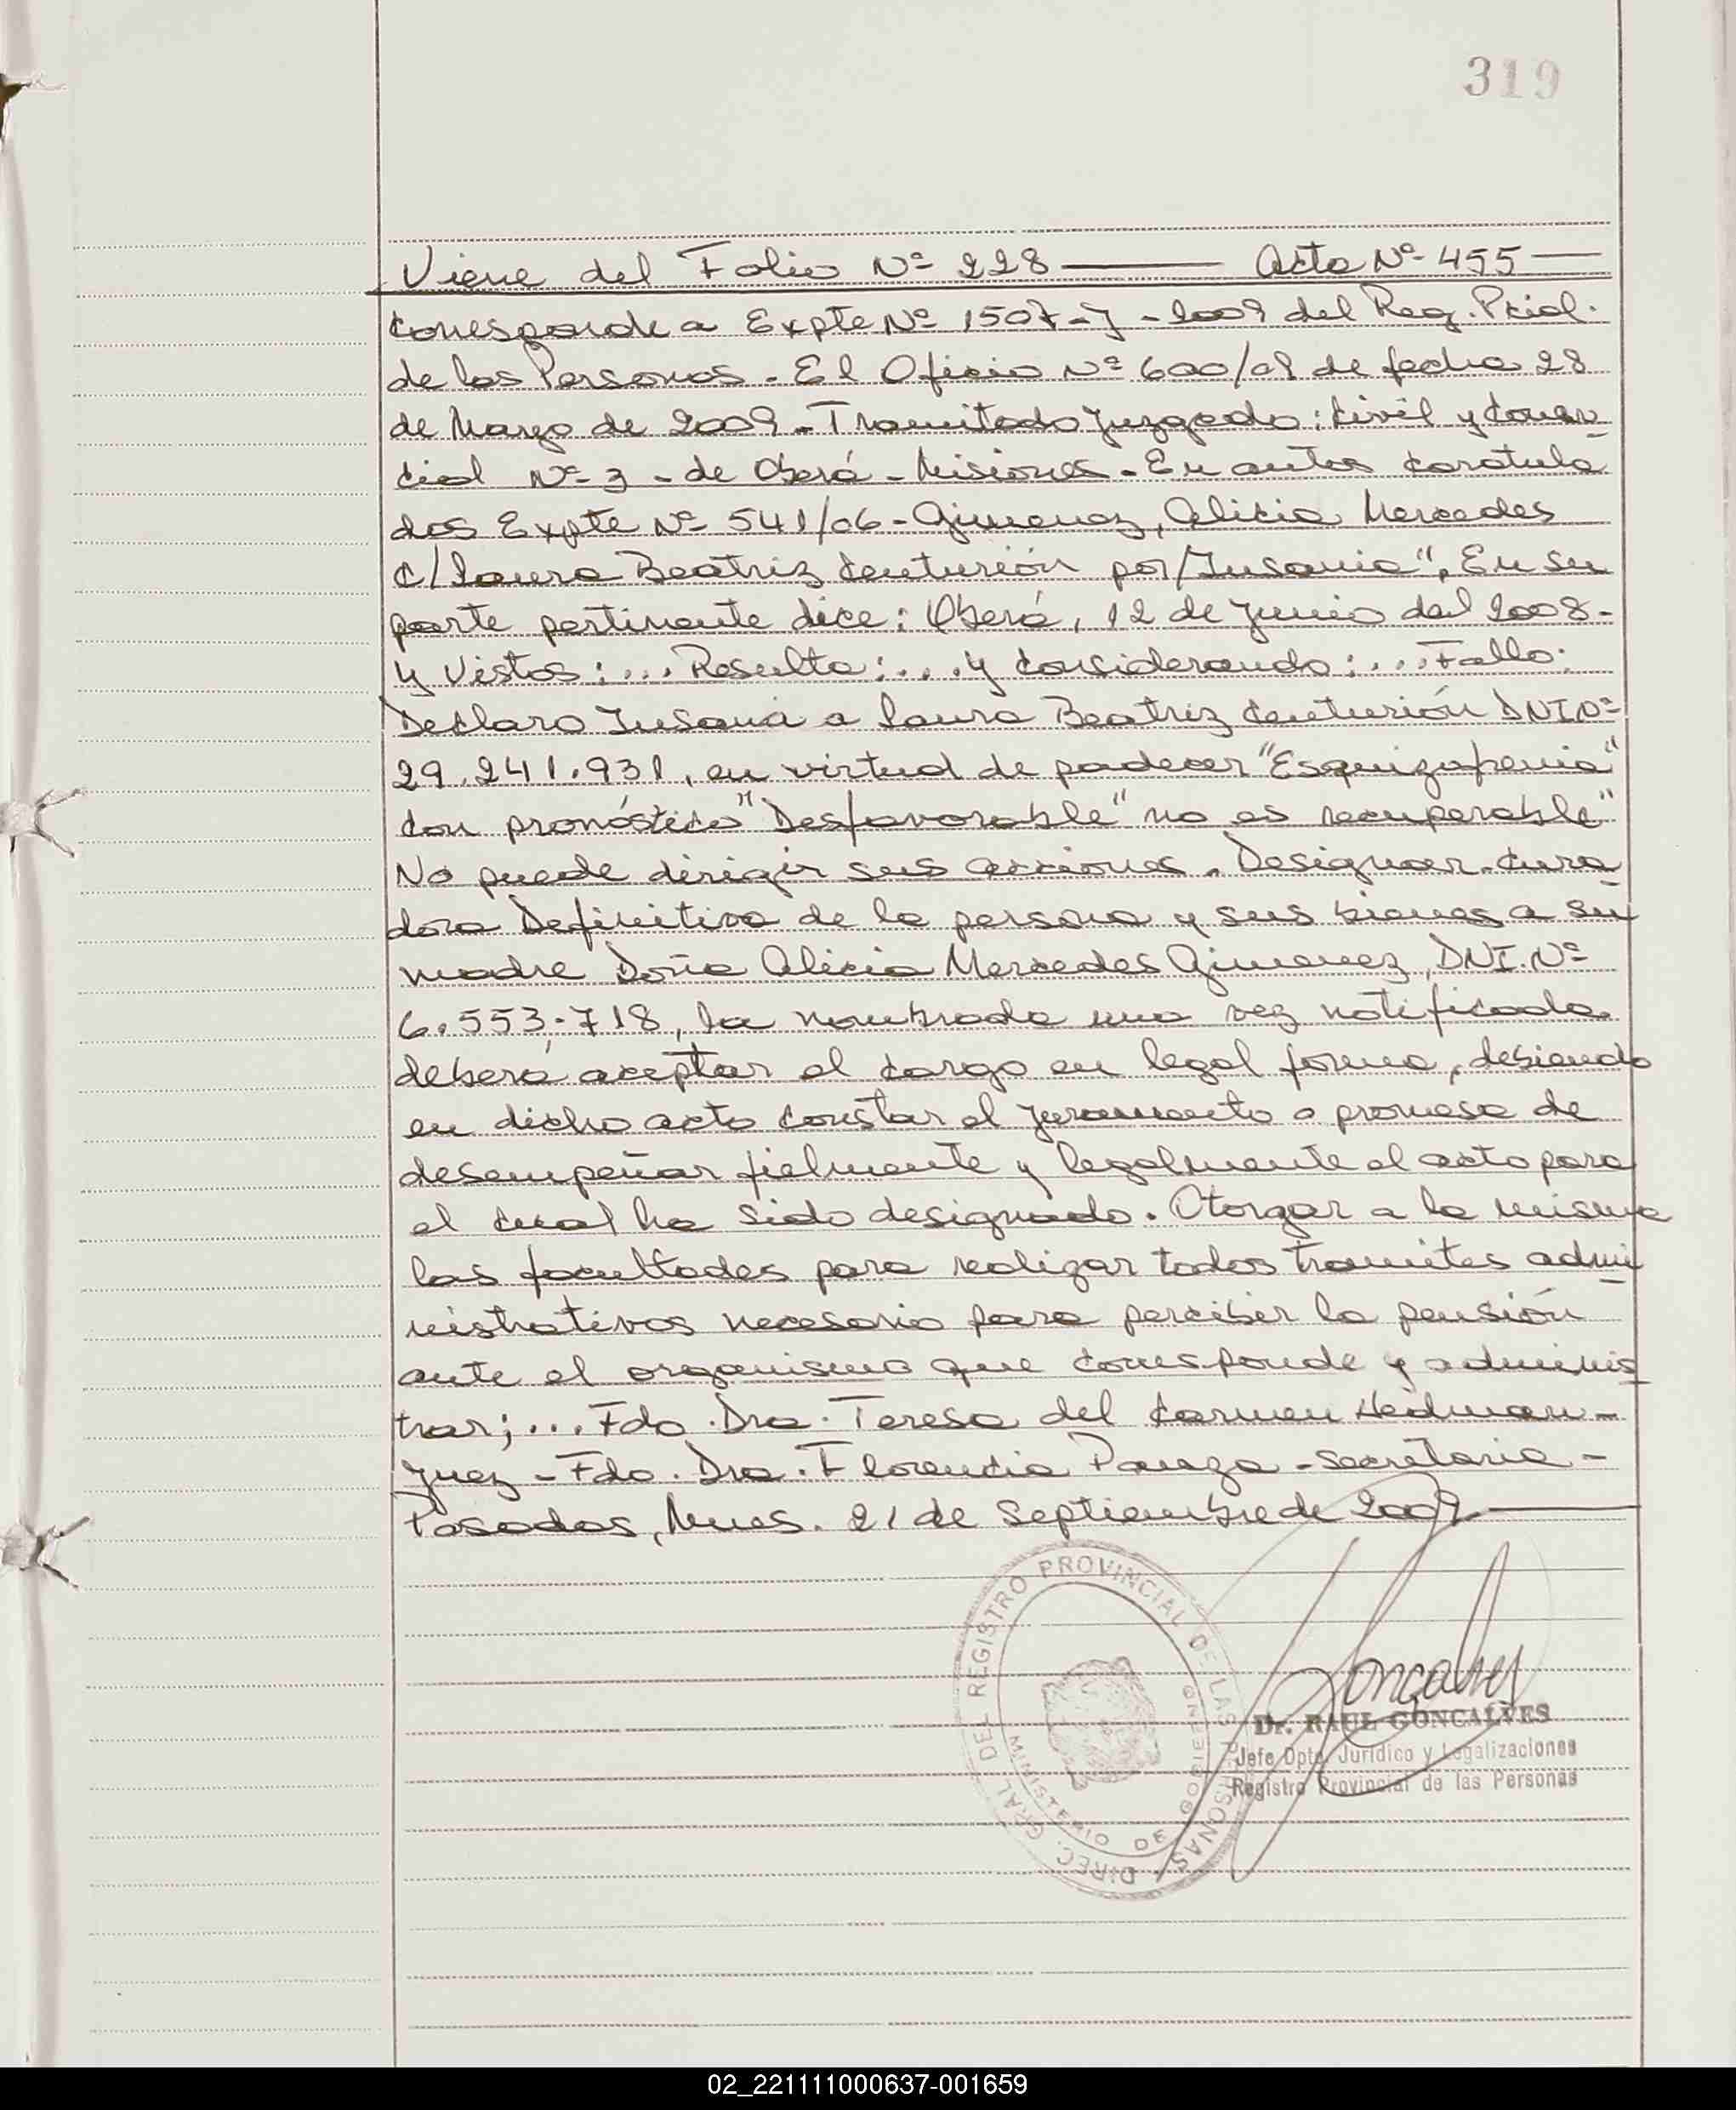 319
Viene del Folio Nº 228 — Acta Nº 455 —
corresponde a Expte Nº 1507-J-2009 del Reg. Pcial.
de las Personas. El Oficio Nº 600/09 de fecha 28
de Marzo de 2009. Tramitado Juzgado: Civil y Comer
cial Nº 3 - de Oberá - Misiones - En autos caratula
dos Expte Nº 541/06 - Gimenez, Alicia Mercedes
c/ Laura Beatriz Centurión por/Insania", En su
parte pertinente dice: Oberá, 12 de Junio del 2008-
y Vistos:... Resulta:... y Considerando:... Fallo:
Declaro Insana a Laura Beatriz Centurión DNI Nº
29.241.931, en virtud de padecer "Esquizofrenia"
con pronóstico "Desfavorable" "no es recuperable"
No puede dirigir sus acciones. Designar Cura
dora Definitiva de la persona y sus bienes a su
madre Doña Alicia Mercedes Gimenez, DNI. Nº
6.553.718, la nombrada una vez notificada
deberá aceptar el cargo en legal forma, debiendo
en dicho acto constar el juramento o promesa de
desempeñar fielmente y legalmente el acto para
el cual ha sido designado. Otorgar a la misma
las facultades para realizar todos tramites admi
nistrativos necesario para percibir la pensión
ante el organismo que corresponde y adminis
trar;... Fdo. Dra. Teresa del Carmen Hedman -
Juez - Fdo. Dra. Florencia Panza - Secretaria -
Posadas, Mnes. 21 de Septiembre de 2009 —
DIREC. GRAL. DEL REGISTRO PROVINCIAL DE LAS PERSONAS
MINISTERIO DE GOBIERNO
Goncalves
Dr. RAUL GONCALVES
Jefe Dpto. Jurídico y Legalizaciones
Registro Provincial de las Personas
02_221111000637-001659